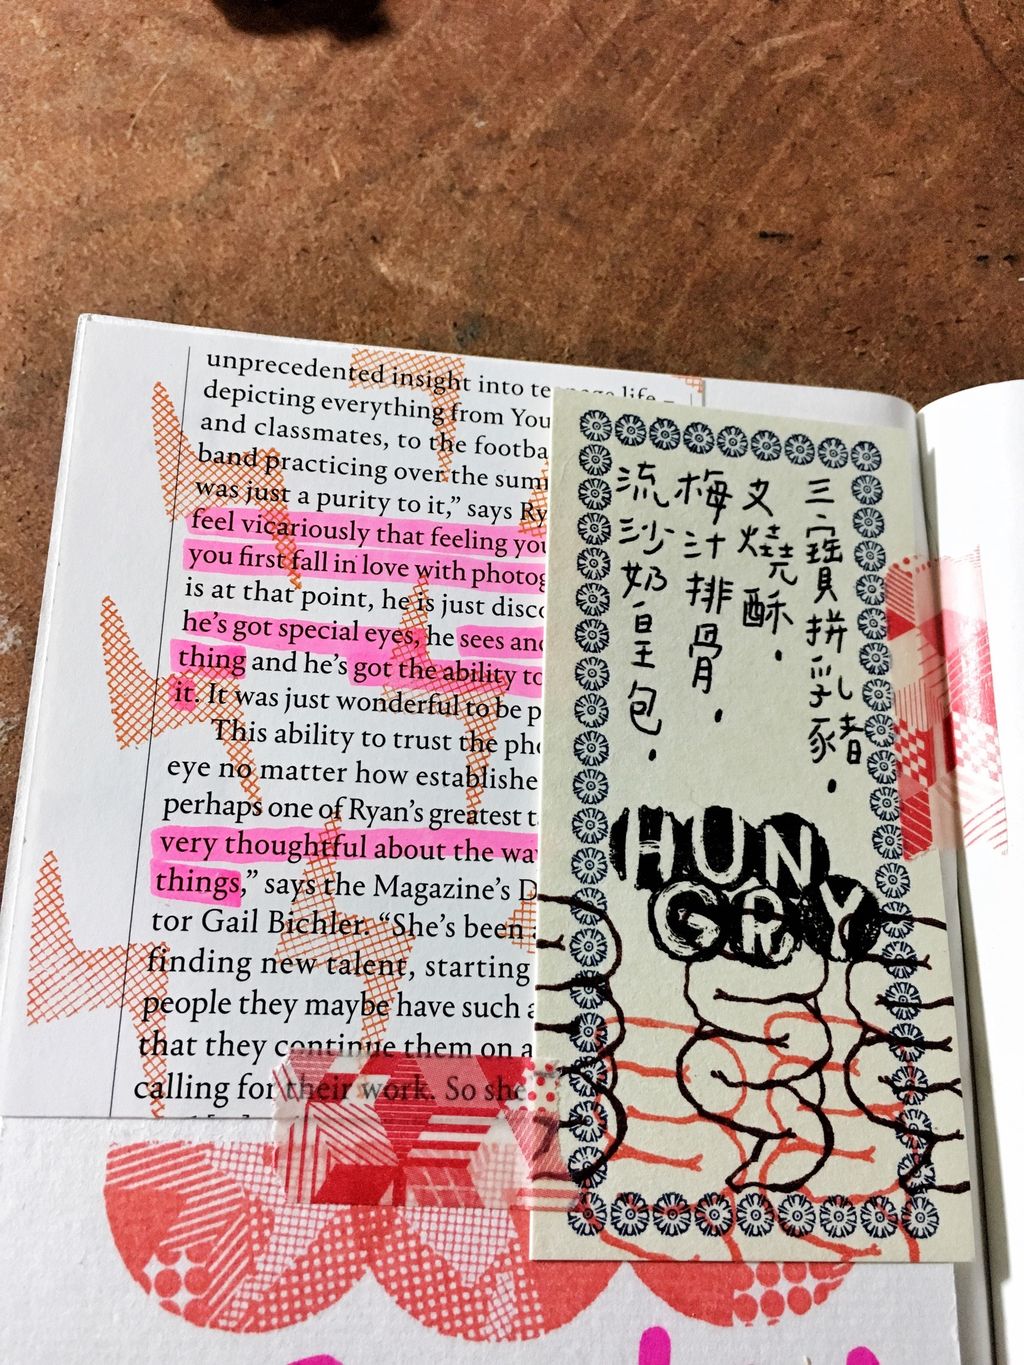 unprecedented insight into teenage life –
depicting everything from You
and classmates, to the footba
band practicing over the sum
was just a purity to it,” says Ry
feel vicariously that feeling you
you first fall in love with photog
is at that point, he is just disco
he’s got special eyes, he sees and
thing and he’s got the ability to
it. It was just wonderful to be p
This ability to trust the pho
eye no matter how establishe
perhaps one of Ryan’s greatest t
very thoughtful about the wa
things,” says the Magazine’s D
tor Gail Bichler. “She’s been a
finding new talent, starting
people they maybe have such a
that they continue them on a
calling for their work. So she
三寶拼乳豬.
叉燒酥.
梅汁排骨.
流沙奶皇包.
HUN
GRY